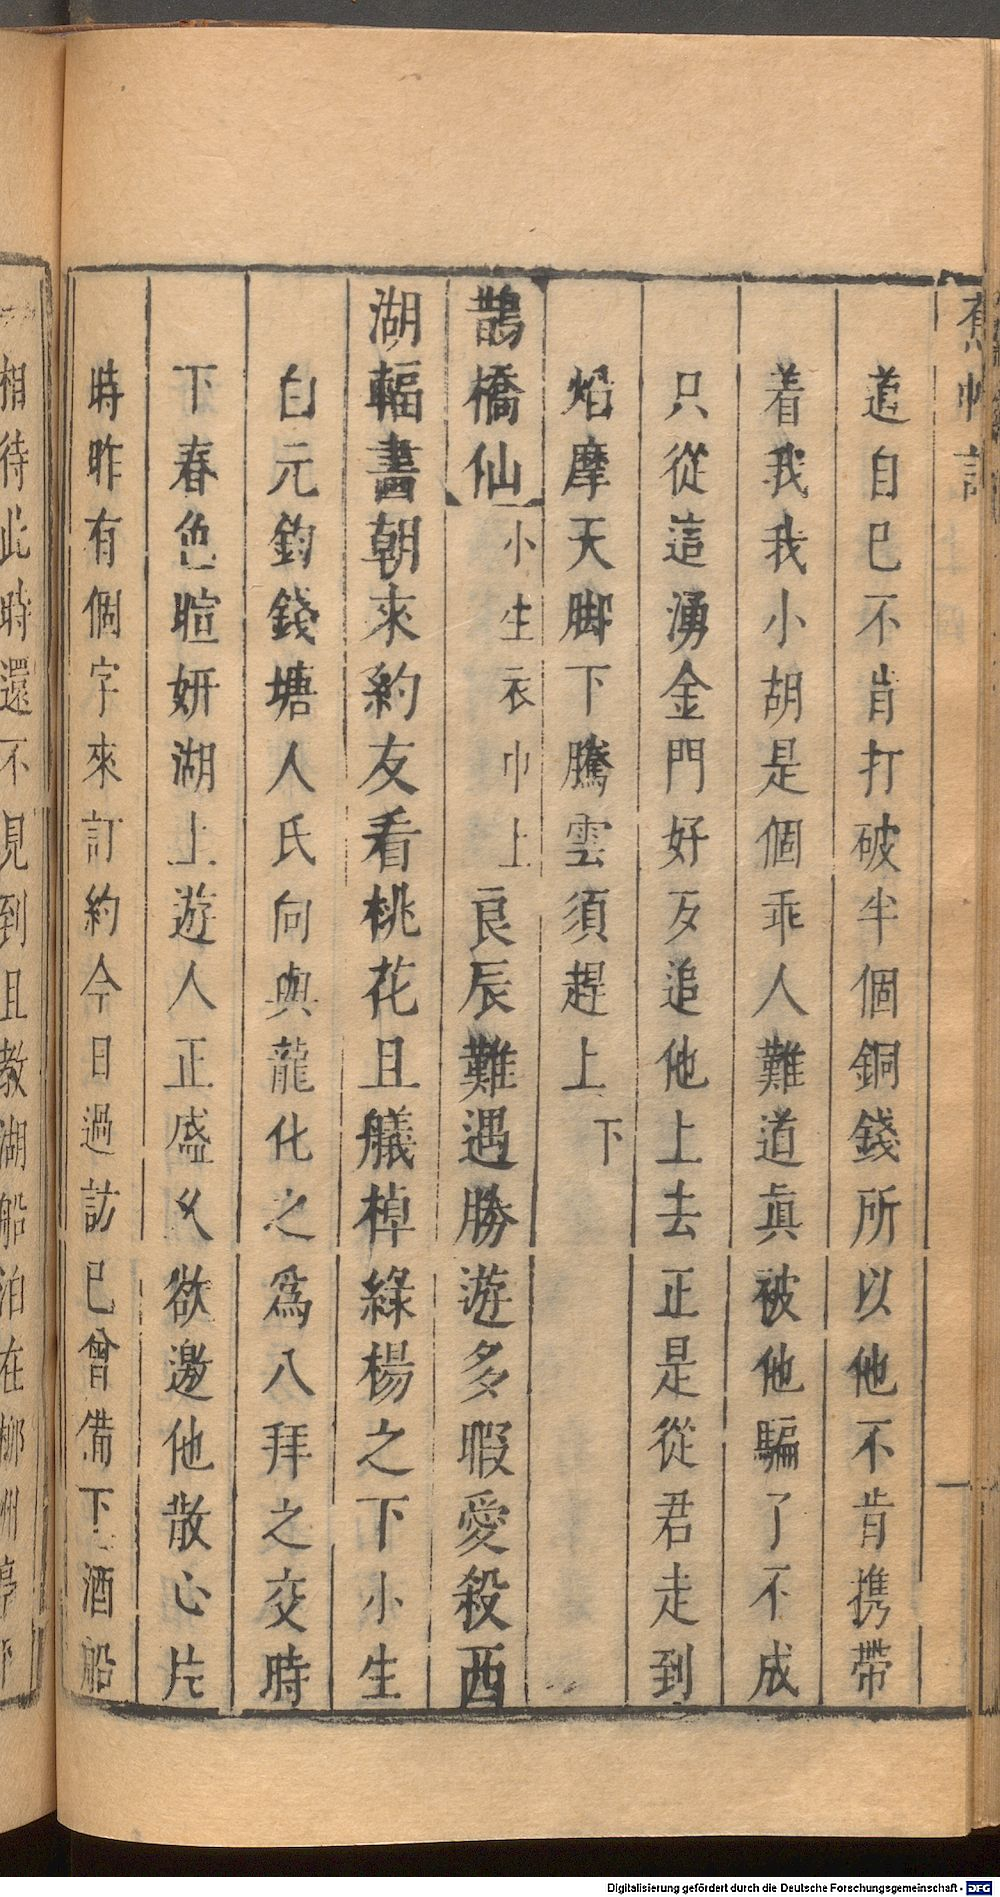 蕉帕記
道自巳不肯打破半個銅錢所以他不肯携帶
着我我小胡是個乖人難道眞被他騙了不成
只從這湧金門好歹追他上去正是從君走到
焰摩天脚下騰雲須趕上 下
鵲橋仙 小生衣巾上 良辰難遇勝遊多暇愛殺西
湖輻畵朝來約友看桃花且艤棹綠楊之下小生
白元鈞錢塘人氏向與龍化之爲八拜之交時
下春色暄妍湖上遊人正盛久欲邀他散心片
時昨有個字來訂約今日過訪已曾備下酒船
相待此時還不見到且教湖船泊在柳州亭下
Digitalisierung gefördert durch die Deutsche Forschungsgemeinschaft - DFG